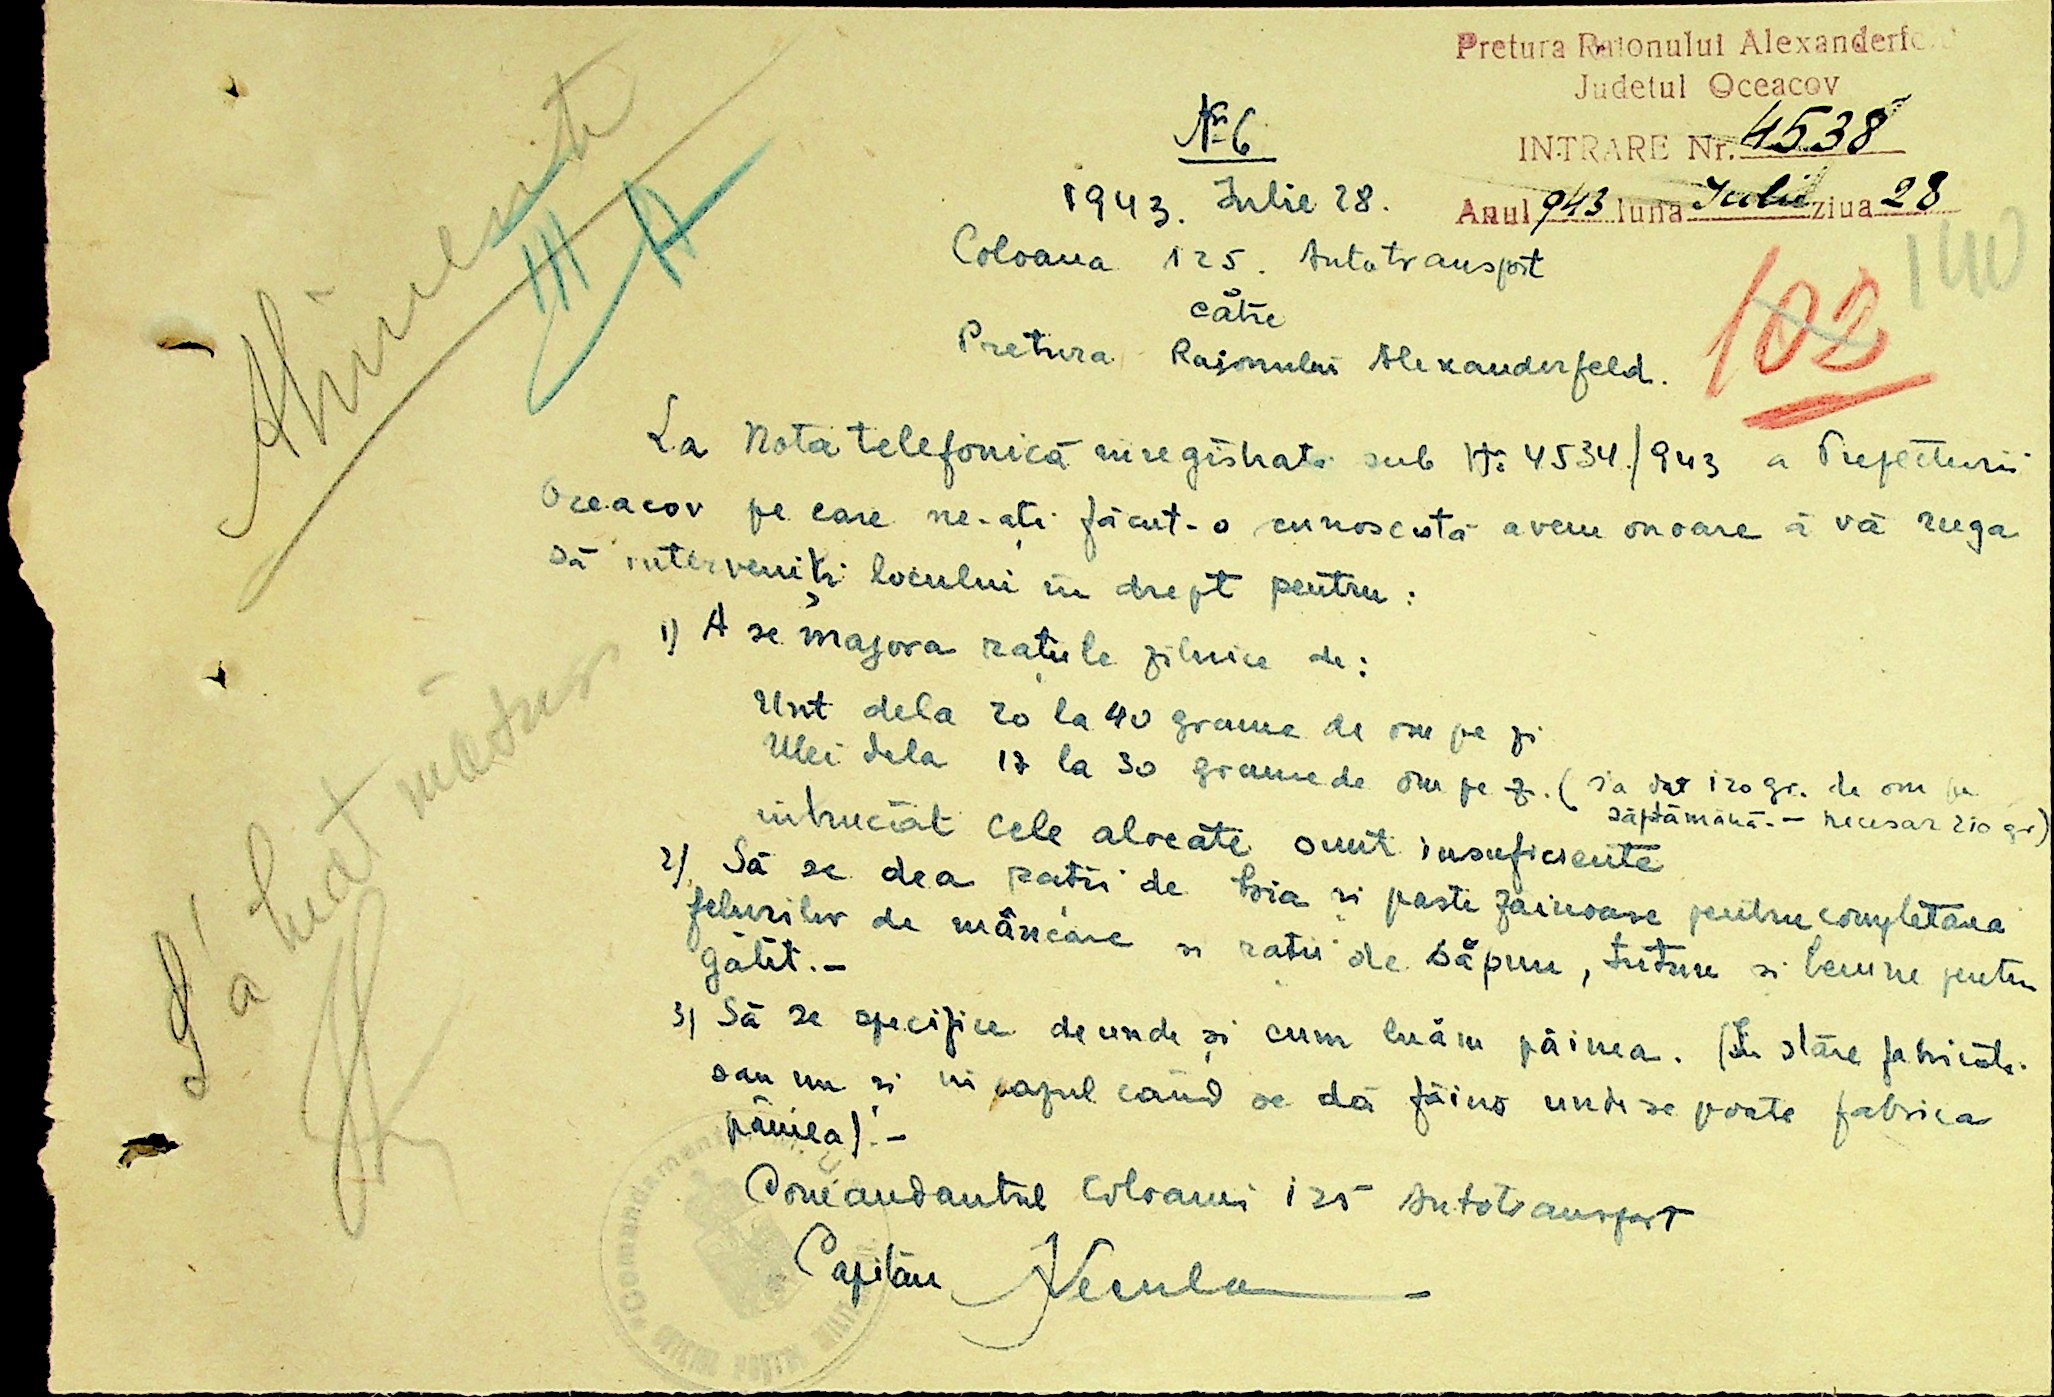 Pretura Raionului Alexanderfeld
Judetul Oceacov
INTRARE Nr. 4538
Anul 943 luna Iulie ziua 28
Nr. 6
1943. Iulie 28.
102
140
Coloana 125. Autotransport
către
Pretura Raionului Alexanderfeld.
III A
La Nota telefonică înregistrată sub Nr 4534/943 a Prefecturii
Oceacov pe care ne-ați făcut-o cunoscută avem onoare a vă ruga
să interveniți locului în drept pentru:
1) A se majora rațiile zilnice de:
Unt dela 20 la 40 grame de om pe zi
Ulei dela 17 la 30 grame de om pe z. (s'a dat 120 gr. de om pe
săptămână. - necesar 210 gr)
întrucât cele alocate sunt insuficiente
2) Să se dea rații de și paste făinoase pentru completarea
felurilor de mâncare și rații de săpun, tutun și lemne pentru
gătit.-
3) Să se specifice de unde și cum luăm pâinea. (În stare fabricată
sau nu și în cazul când se dă făină unde se poate fabrica
pâinea).-
Comandantul Coloanei 125 Autotransport
Capitan Necula
S'a luat măsuri